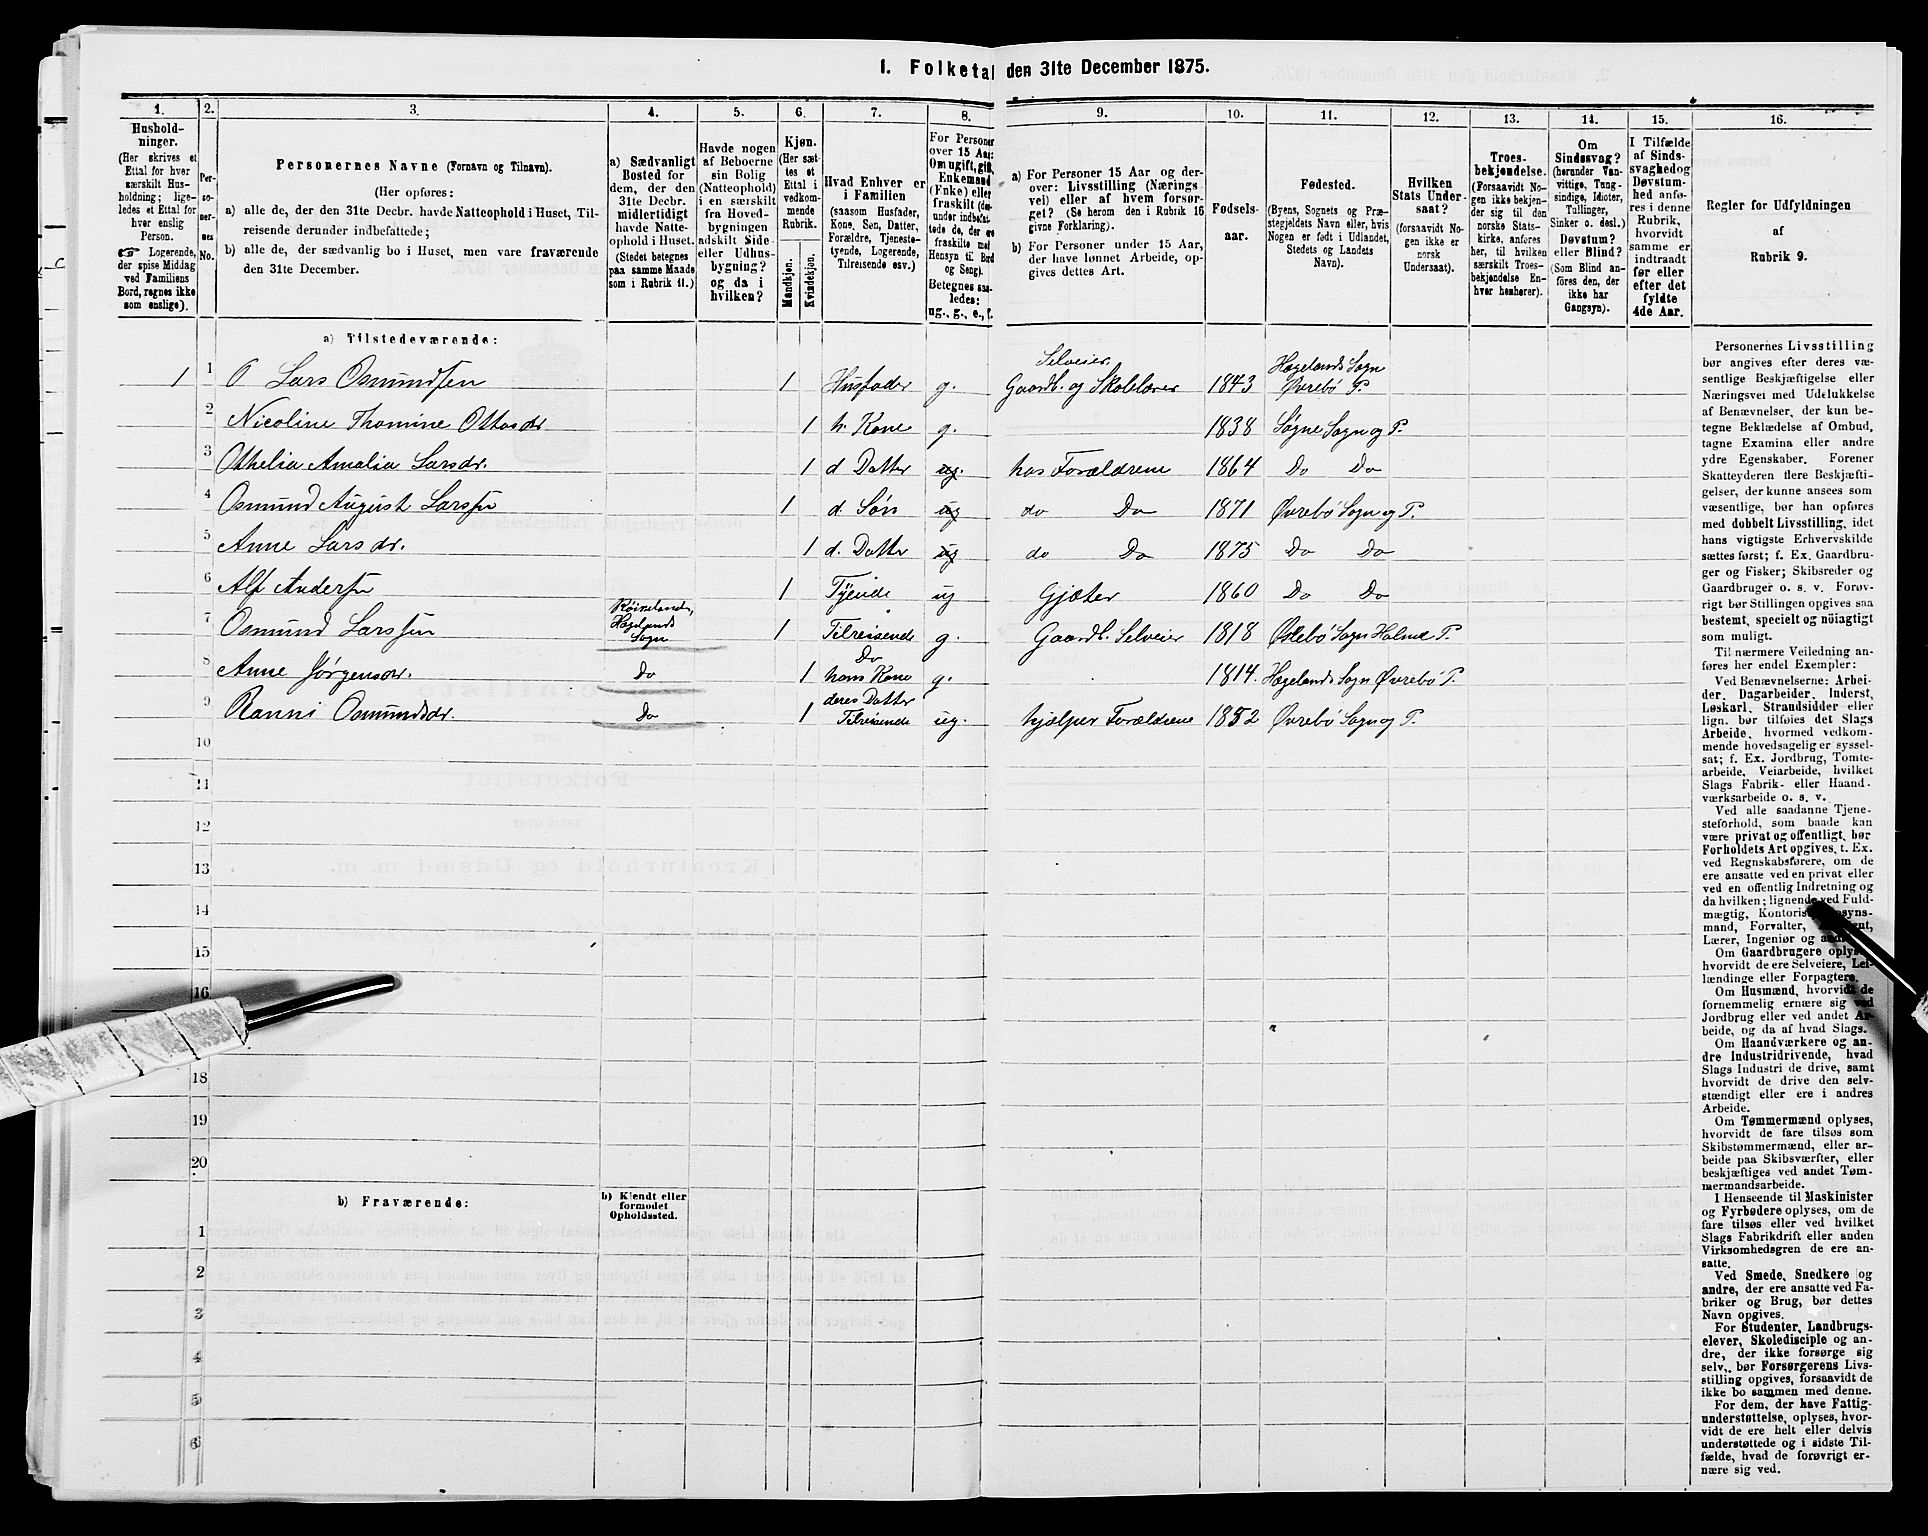 1. Folketal den 31te December 1875.
1.
2.
3.
4.
5.
6.
7.
8.
9.
10.
11.
12.
13.
14.
15.
16.
Hushold-
ninger.
(Her skrives et
Ettal for hver
særskilt Hus-
holdning; lige-
ledes et Ettal for
hver enslig
Person.
☞ Logerende,
der spise Middag
ved Familiens
Bord, regnes ikke
som enslige).
Per-
so-
ner-
nes
No.
Personernes Navne (Fornavn og Tilnavn).
(Her opføres:
a) alle de, der den 31te Decbr. havde Natteophold i Huset, Til-
reisende derunder indbefattede;
b) alle de, der sædvanlig bo i Huset, men vare fraværende
den 31te December.
a) Sædvanligt
Bosted for
dem, der den
31te Decbr.
midlertidigt
havde Natte-
ophold i Huset.
(Stedet betegnes
paa samme Maade
som i Rubrik 11.)
Havde nogen
af Beboerne
sin Bolig
(Natteophold)
i en særskilt
fra Hoved-
bygningen
adskilt Side-
eller Udhus-
bygning?
og da i
hvilken?
Kjøn.
(Her sæt-
tes et
Ettal i
vedkom-
mende
Rubrik.
Mandkjøn.
Kvindekjøn.
Hvad Enhver er
i Familien
(saasom Husfader,
Kone, Søn, Datter,
Forældre, Tjeneste-
tyende, Logerende,
Tilreisende osv.)
For Personer
over 15 Aar:
Om ugift, gift,
Enkemand
(Enke) eller
fraskilt (der-
under indbefat-
tede de, der ere
fraskilte med
Hensyn til Bord
og Seng).
Betegnes saa-
ledes:
ug., g., e., f.
a) For Personer 15 Aar og der-
over: Livsstilling (Nærings-
vei) eller af hvem forsør-
get? (Se herom den i Rubrik 16
givne Forklaring).
b) For Personer under 15 Aar,
der have lønnet Arbeide, op-
gives dettes Art.
Fødsels-
aar.
Fødested.
(Byens, Sognets og Præ-
stegjeldets Navn eller, hvis
Nogen er født i Udlandet,
Stedets og Landets
Navn).
Hvilken
Stats Under-
saat?
(forsaavidt No-
gen ikke er
norsk
Undersaat).
Troes-
bekjendelse.
(Forsaavidt No-
gen ikke bekjen-
der sig til den
norske Stats-
kirke, anføres
her, til hvilken
særskilt Troes-
bekjendelse En-
hver henhører).
Om
Sindssvag?
(herunder Van-
vittige, Tung-
sindige, Idioter,
Tullinger,
Sinker o. desl.)
Døvstum?
eller Blind?
(Som Blind an-
føres den, der
ikke har
Gangsyn).
I Tilfælde
af Sinds-
svaghed og
Døvstum-
hed anfø-
res i denne
Rubrik,
hvorvidt
samme er
indtraadt
før eller
efter det
fyldte
4de Aar.
Regler for Udfyldningen
af
Rubrik 9.
a) Tilstedeværende:
Selveier Hægelands Sogn
1 1 O Lars Osmundsen 1 Husfader g. Gaardb. og Skolelærer 1843 Øvrebø P.
2 Nicoline Thomine Ottosdr 1 h. Kone g. 1838 Søgne Sogn og P.
3 Othelia Amalia Larsdr. 1 d Datter ug. hos Forældrene 1864 Do Do
4 Osmund August Larssen 1 d. Søn ug do Do 1871 Øvrebø Sogn og P.
5 Anne Larsdr. 1 d. Datter ug do Do 1875 Do Do
6 Alf Andersen 1 Tyende ug Gjæter 1860 Do Do
Hægelands
Sogn
7 Osmund Larssen 1 Tilreisende g. Gaardb. Selveier 1818 Øslebø Sogn Holme P.
Do
8 Anne Jørgensdr. Do 1 hans Kone g. 1814. Hægelands Sogn Øvrebø P.
deres Datter
9 Ranni Osmundsdr. Do 1 Tilreisende ug. hjælper Forældrene 1852 Øvrebø Sogn og P.
10
11
12
13
14
15
16
18
19
20
b) Fraværende:
b) Kjendt eller
formodet
Opholdssted.
1
2
3
4
5
6
Personernes Livsstilling
bør angives efter deres væ-
sentlige Beskjæftigelse eller
Næringsvei med Udelukkelse
af Benævnelser, der kun be-
tegne Beklædelse af Ombud,
tagne Examina eller andre
ydre Egenskaber. Forener
Skatteyderen flere Beskjæfti-
gelser, der kunne ansees som
væsentlige, bør han opføres
med dobbelt Livsstilling, idet
hans vigtigste Erhvervskilde
sættes først; f. Ex. Gaardbru-
ger og Fisker; Skibsreder og
Gaardbruger o. s. v. Forøv-
rigt bør Stillingen opgives saa
bestemt, specielt og nøiagtigt
som muligt.
Til nærmere Veiledning an-
føres her endel Exempler:
Ved Benævnelserne: Arbei-
der, Dagarbeider, Inderst,
Løskarl, Strandsidder eller
lign. bør tilføies det Slags
Arbeide, hvormed vedkom-
mende hovedsagelig er syssel-
sat; f. Ex. Jordbrug, Tomte-
arbeide, Veiarbeide, hvilket
Slags Fabrik- eller Haand-
værksarbeide o. s. v.
Ved alle saadanne Tjene-
steforhold, som baade kan
være privat og offentligt, bør
Forholdets Art opgives, t. Ex.
ved Regnskabsførere, om de
ere ansatte ved en privat eller
ved en offentlig Indretning og
da hvilken; lignende ved Fuld-
mægtig,
mand, Forvalter,
Lærer, Ingeniør og
Om Gaardbrugere oplyses,
hvorvidt de ere Selveiere, Lei-
lændinge eller Forpagtere.
Om Husmænd, hvorvidt de
fornemmelig ernære sig ved
Jordbrug eller ved andet Ar-
beide, og da af hvad Slags.
Om Haandværkere og an-
dre Industridrivende, hvad
Slags Industri de drive, samt
hvorvidt de drive den selv-
stændigt eller ere i andres
Arbeide.
Om Tømmermænd oplyses,
hvorvidt de fare tilsøs som
Skibstømmermænd, eller ar-
beide paa Skibsværfter, eller
beskjæftiges ved andet Tøm-
mermandsarbeide.
I Henseende til Maskinister
og Fyrbødere oplyses, om de
fare tilsøs eller ved hvilket
Slags Fabrikdrift eller anden
Virksomhedsgren de ere an-
satte.
Ved Smede, Snedkere og
andre, der ere ansatte ved Fa-
briker og Brug, bør dettes
Navn opgives.
For Studenter, Landbrugs-
elever, Skoledisciple og an-
dre, der ikke forsørge sig
selv, bør Forsørgerens Livs-
stilling opgives, forsaavidt de
ikke bo sammen med denne.
For dem, der have Fattig-
understøttelse, oplyses, hvor-
vidt de ere helt eller delvis
understøttede og i sidste Til-
fælde, hvad de forøvrigt er-
nære sig ved.